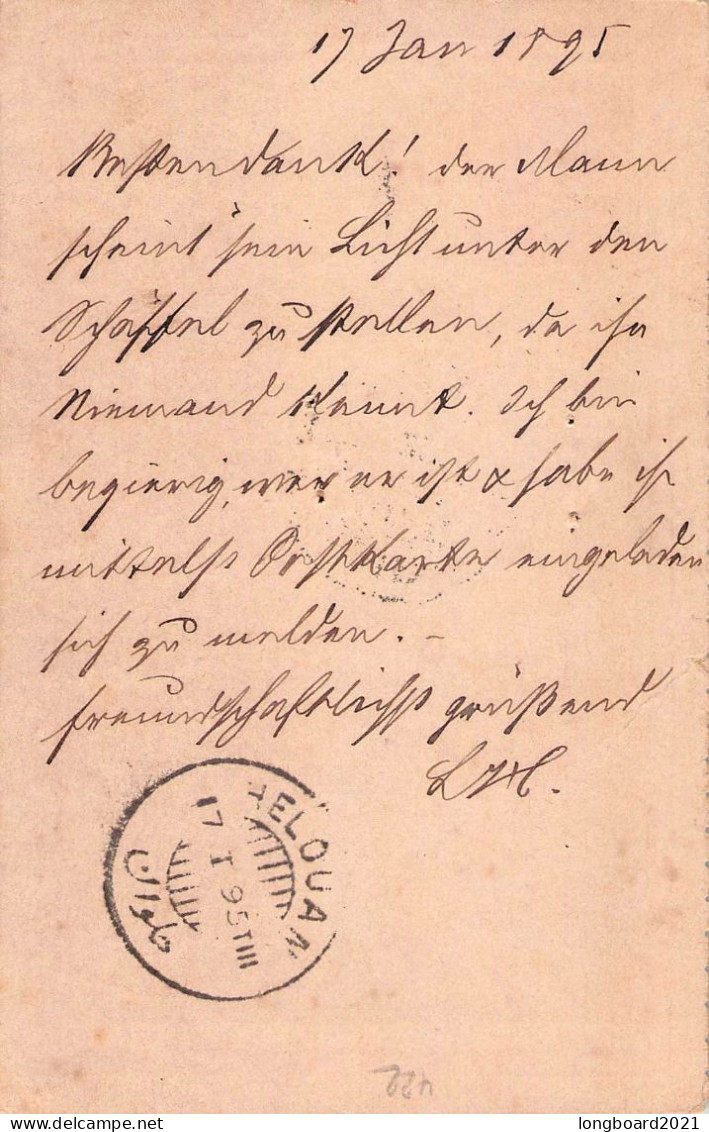 17 Jan 1895
Besten dank! der Mann
scheint sein Licht unter den
Schäffel zu stellen, da ihn
Niemand kennt. Ich bin
begierig, wer er ist & habe ihn
mittelst Postkarte eingeladen
sich zu melden. –
freundschaftlichst grüßend
HELOUAN
17 I 95 T III
حلوان
422
delcampe.net
longboard2021